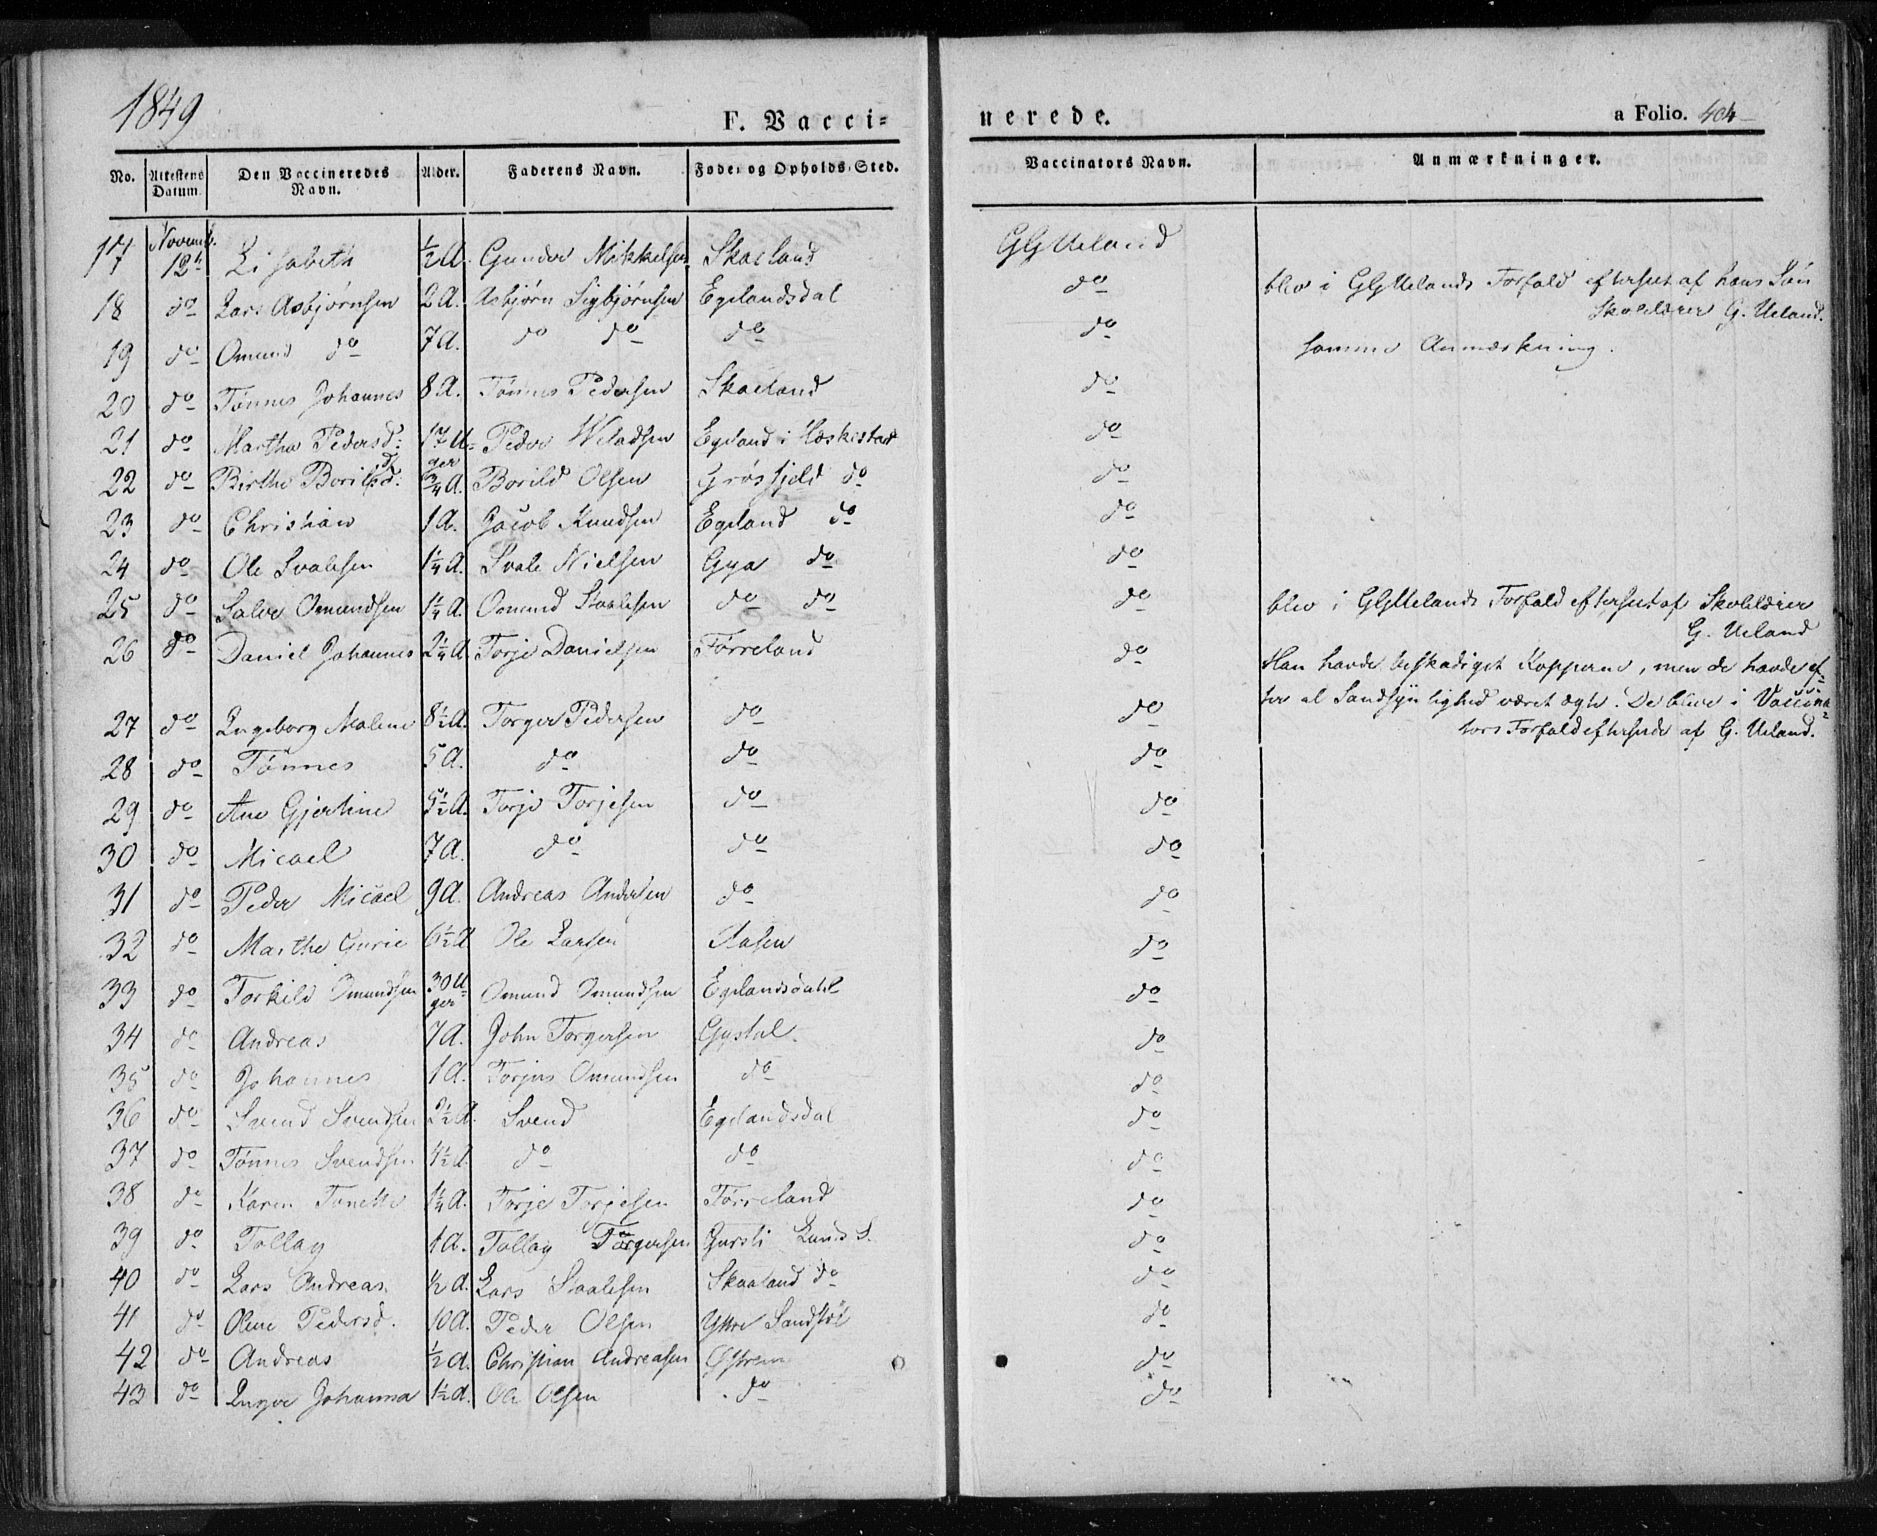 1849
F. Vacci=
nerede.
a Folio. 404
No. Attestens Datum. Den Vaccineredes Navn. Alder. Faderens Navn. Føde- og Opholds-Sted. Vaccinators Navn. Anmærkninger.
17 Novemb. 12te Lisabeth ½ A. Gunder Mikkelsen Skaeland
18 do Lars Asbjørnsen 2 A. Asbjørn Sigbjørnsen Egelandsdal do blev i GGUelands Forfald efterseet af hans Søn
Skolelærer G. Ueland.
19 do Omund do 7 A. do do do do samme Anmærkning.
20 do Tønnes Johannes 8 A. Tønnes Pedersen Skaeland do
21 do Martha Pedersd: 17 U=ger Peder Weladsen Egeland i Heskestad do
22 do Birthe Borildsd: ¾ A. Borild Olsen Grøsfjeld do do
23 do Christian 1 A. Jacob Knudsen Egeland do do
24 do Ole Svalesen 1¼ A. Svale Nielsen Gya do do
25 do Salve Omundsen 1¼ A. Omund Staalesen do do do blev i GGUelands Forfald efterseet af Skolelærer
G. Ueland
26 do Daniel Johannes 2¼ A. Torje Danielsen Førreland do Han havde beskadiget Kopperne, men de havde ef=
ter al Sandsynlighed været ægte. De bleve i Vaccina=
tors Forfald efterseede af G. Ueland.
27 do Ingeborg Malene 8½ A. Torger Pedersen do do
28 do Tønnes 5 A. do do do
29 do Ane Gjertine 5½ A. Torje Torjesen do do
30 do Micael 7 A. do do do
31 do Peder Micael 9 A. Andreas Andersen do do
32 do Marthe Gurie 6½ A. Ole Larsen Aasen do
33 do Torkild Omundsen 30 U=ger Omund Omundsen Egelandsdahl do
34 do Andreas 7 A. John Torgersen Gystøl. do
35 do Johannes 1 A. Torjus Omundsen do do
36 do Svend Svendsen 2½ A. Svend Egelandsdal do
37 do Tønnes Svendsen 4½ A. do do do
38 do Karen Tonette 1¼ A. Torje Torjesen Førreland do
39 do Tollag 1 A. Tollag Torgersen Gursli Lunds S. do
40 do Lars Andreas ½ A. Lars Staalesen Skaaland do do
41 do Olene Pedersd. 10 A. Peder Olsen Yttre Sandstøl do
42 do Andreas ½ A. Christian Andreasen Østrem do
43 do Inger Johanna 1½ A. Ole Olsen do do